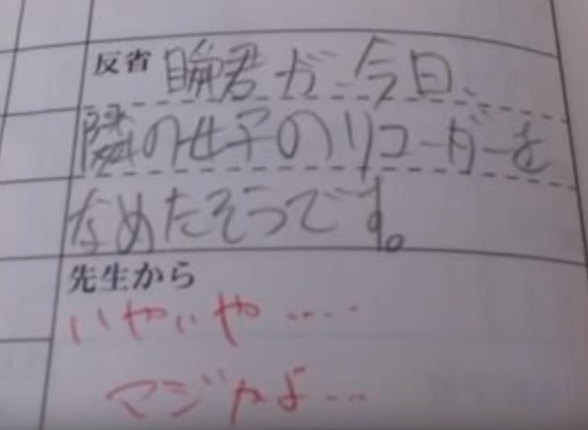 反省 瞬君が今日、
隣の女子のリコーダーを
なめたそうです。
先生から
いやいや....
マジかよ...